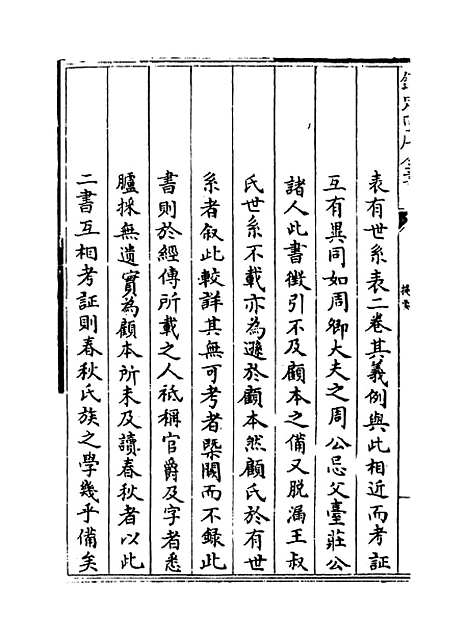 表有世系表二卷其義例與此相近而考証
互有異同如周卿大夫之周公忌父臺莊公
諸人此書徴引不及顧本之備又脱漏王叔
氏世系不載亦為遜於顧本然顧氏於有世
系者叙此較詳其無可考者槩闕而不録此
書則於經傳所載之人祇稱官爵及字者悉
臚採無遺實為顧本所未及讀春秋者以此
二書互相考証則春秋氏族之學幾乎備矣
提要